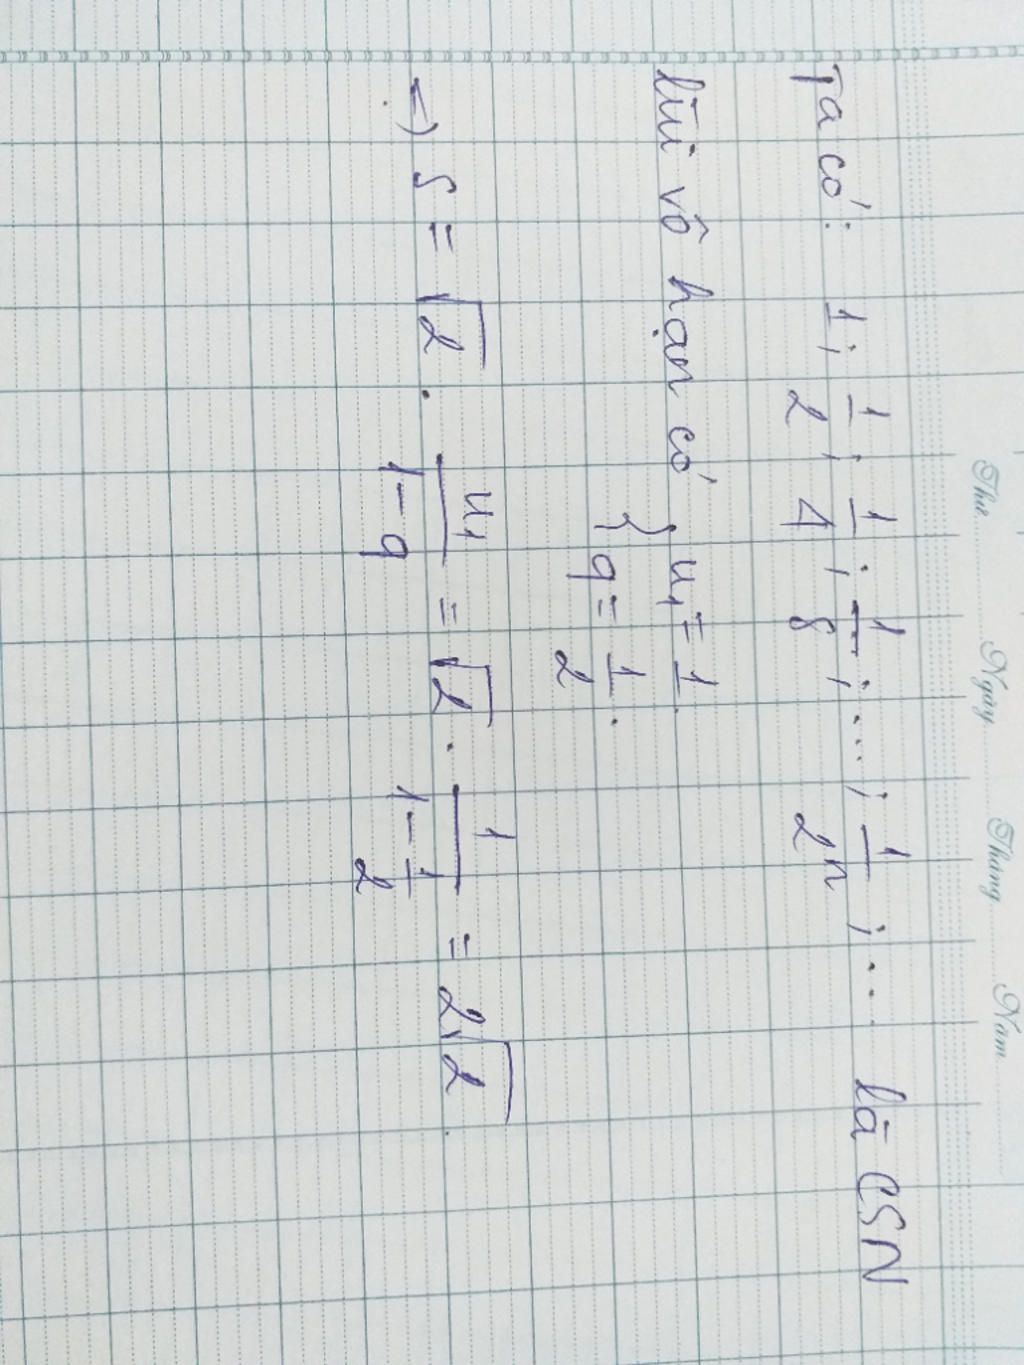 Thứ Ngày Tháng Năm
Ta có: 1; 1/2; 1/4; 1/8; ...; 1/2^n; ... là CSN
lùi vô hạn có { u₁ = 1.
q = 1/2.
=> S = √2 . u₁/(1 - q) = √2 . 1/(1 - 1/2) = 2√2.